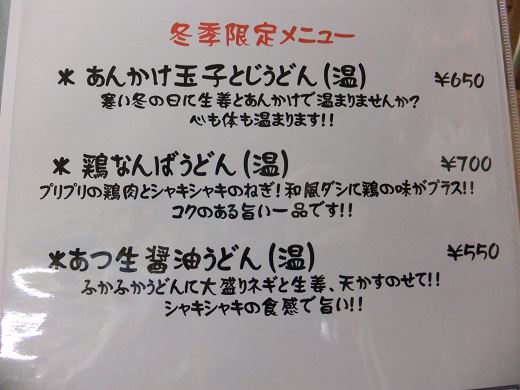 冬季限定メニュー
* あんかけ玉子とじうどん(温) ¥650
寒い冬の日に生姜とあんかけで温まりませんか?
心も体も温まります!!
* 鶏なんばうどん(温) ¥700
プリプリの鶏肉とシャキシャキのねぎ!和風ダシに鶏の味がプラス!!
コクのある旨い一品です!!
*あつ生醤油うどん(温) ¥550
ふかふかうどんに大盛りネギと生姜、天かすのせて!!
シャキシャキの食感で旨い!!